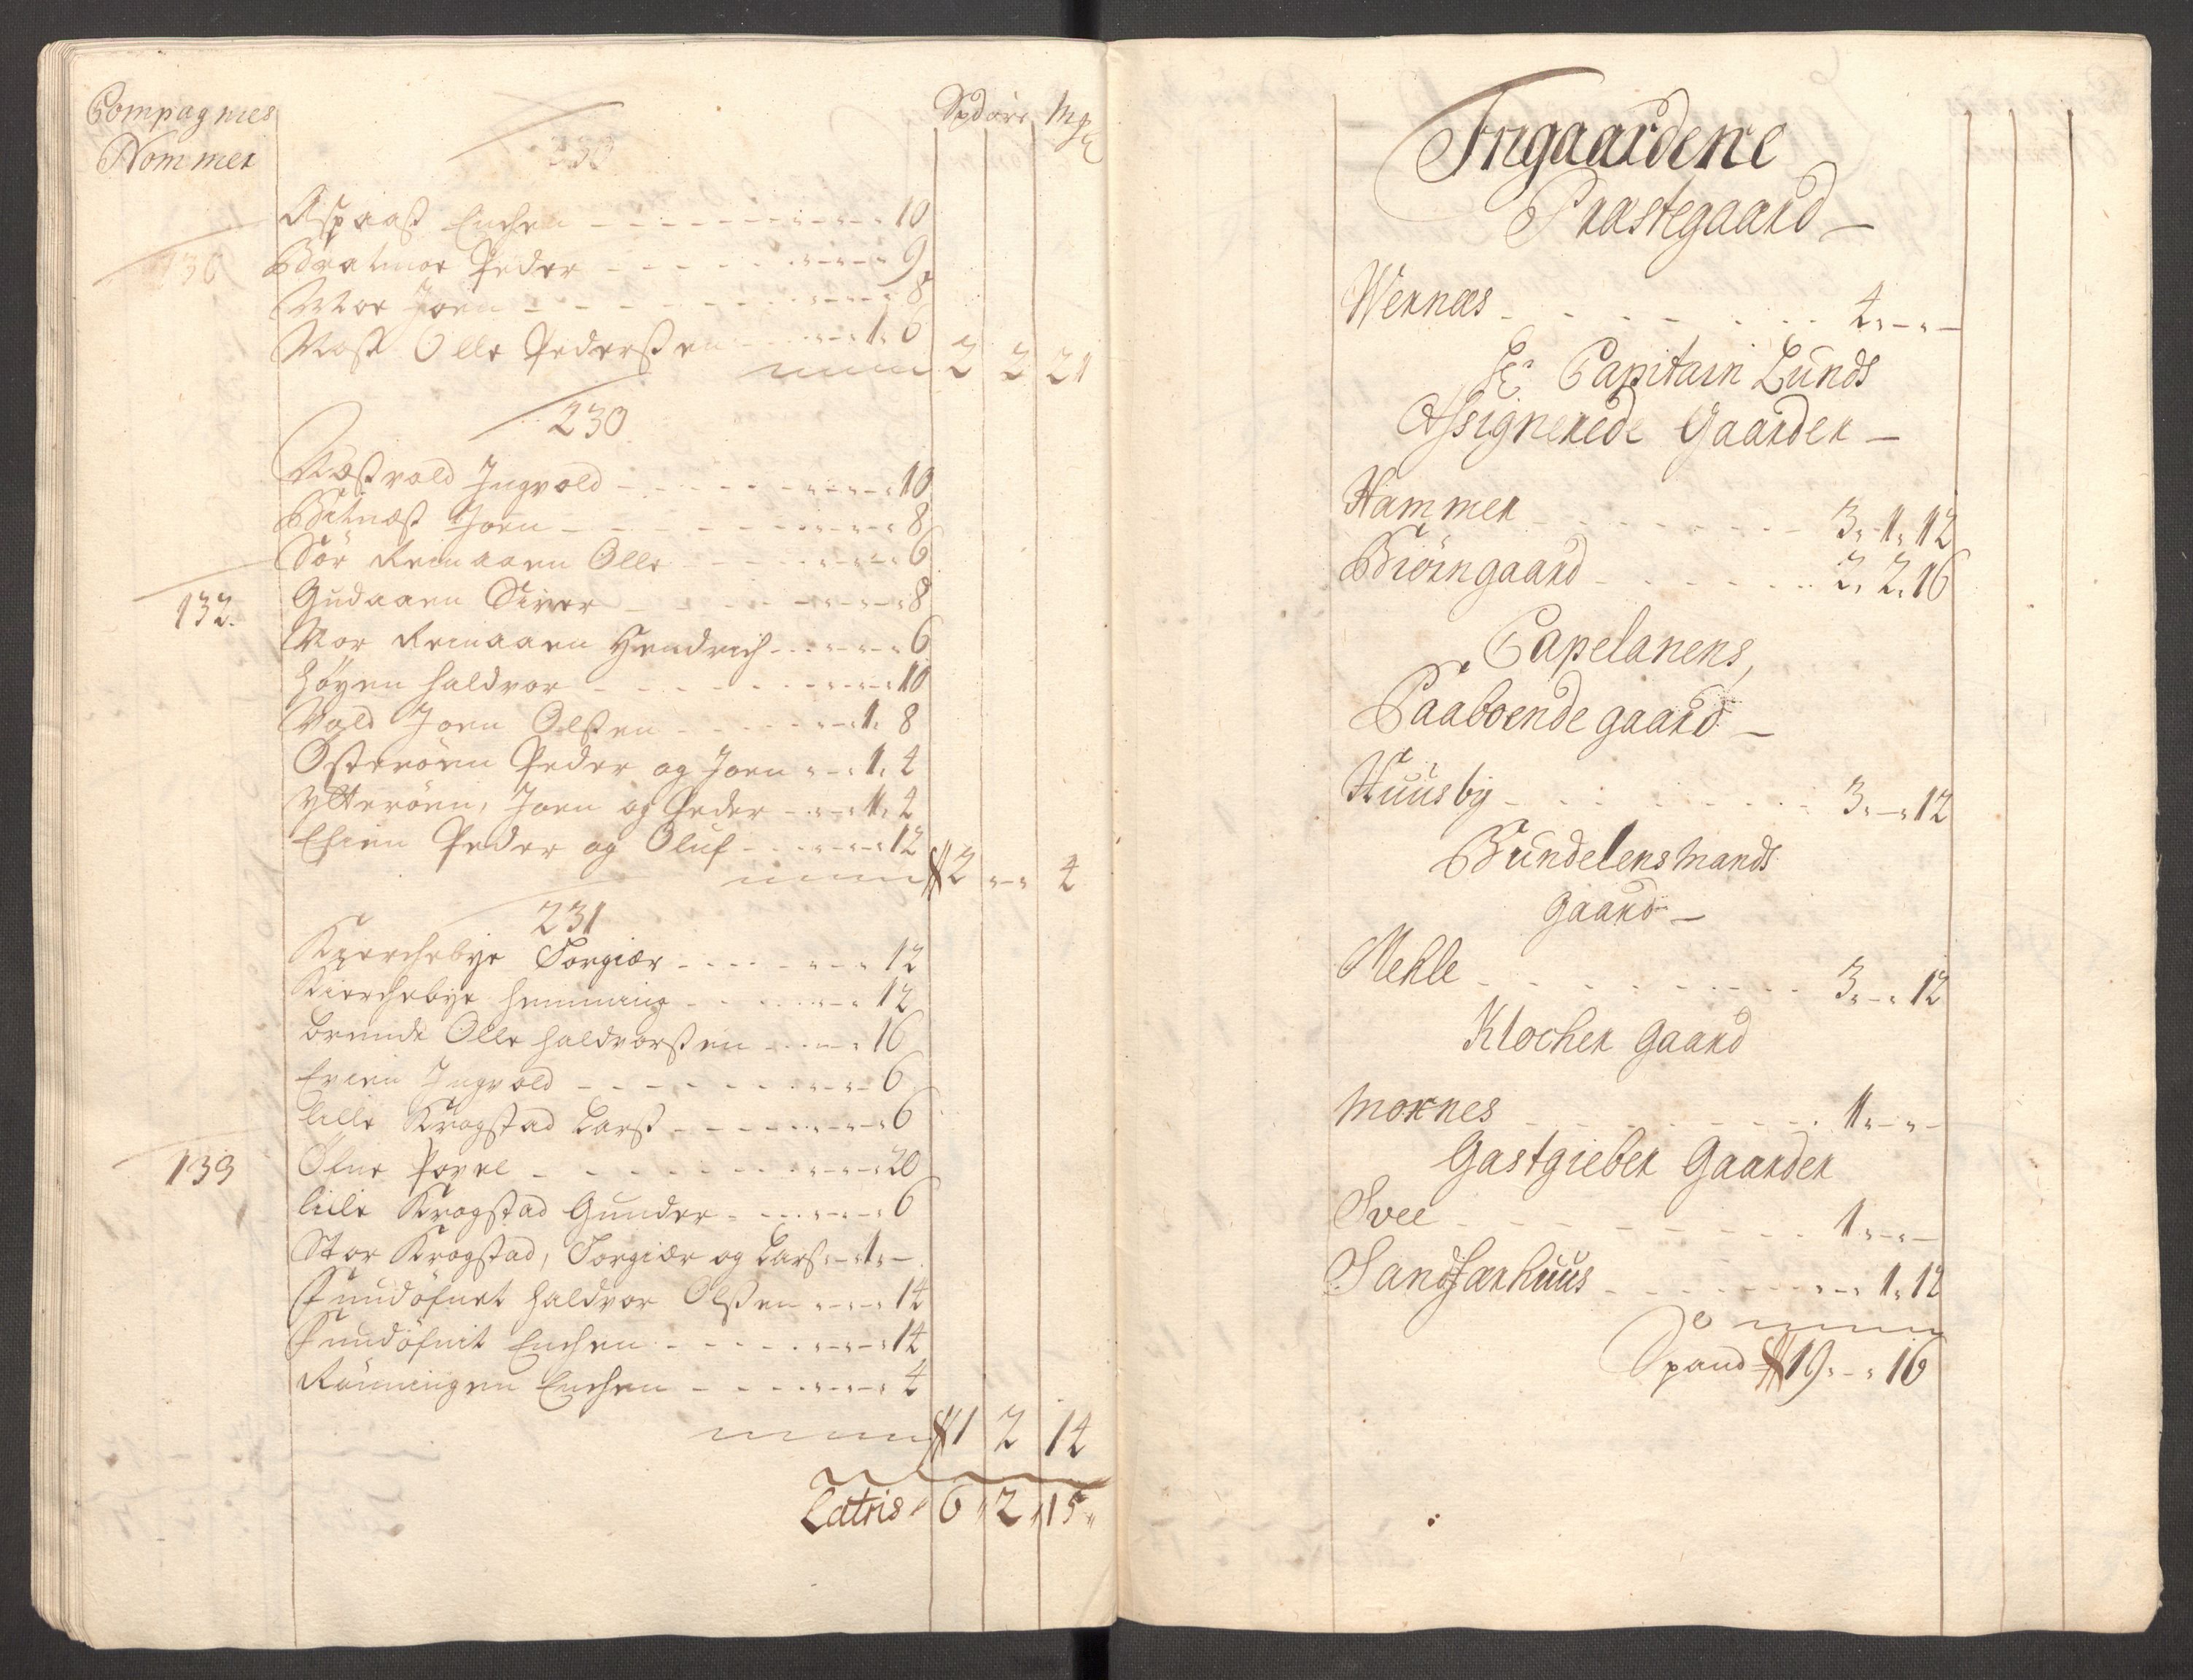 Compagnies Spd öre Mgl
Nommer
Aspaas Erichen - - - 10
130 Bratmoe Peder - - - 9
Moe Joen - - - 8
Moss Olle Pederssen - - 1. 6
2 2 21
230
Næssvold Ingvold - - - 10
Bitnæss Joen - - - 8
Sör Remaaen Olle - - - 6
132. Gudaaen Siver - - - 8
Nor Remaaen Hendrich - - - 6
Höyen Haldvor - - - 10
Vold Joen Olssen - - 1. 8
Österöen Peder og Joen - - 1. 4
Ytteröen, Joen og Peder - - 1. 2
Ehien Peder og Oluf - - - 12
2 - 4
231
Kierchebye Torgier - - - 12
Kierchebye Hemming - - - 12
Brende Olle Haldvorssen - - 16
Evien Ingvold - - - 6
Lille Krogstad Larss - - - 6
133 Ofne Povel - - - 20
Lille Krogstad Gunder - - - 6
Stor Krogstad, Torgier og Lars - 1. -
Sundöfnet Haldvor Olssen - - 14
Sundöfnit Erichen - - - 14
Rönningen Erichen - - - 4
1 2 14
Latris 6 2 15
Frigaardene
Præstegaard -
Wernæs - - - 4. - . -
Hr Capitain Lunds
Assignerede Gaarder -
Hammer - - - 3. 1. 12
Biörngaard - - - 2. 2. 16
Capelanens,
Paaboende gaard -
Huusby - - - 3. - . 12
Bundelensmands
gaard -
Mehle - - - 3. - . 12
Klocher gaard
Moxnes - - - 1. - . -
Gastgieber Gaarder
Svee - - - 1. - . -
Sandferhuus - - - 1. 12
Spand 19. - . 16